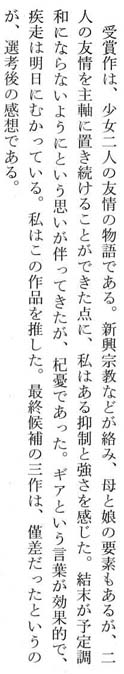 受賞作は、少女二人の友情の物語である。新興宗教などが絡み、母と娘の要素もあるが、二
人の友情を主軸に置き続けることができた点に、私はある抑制と強さを感じた。結末が予定調
和にならないようにという思いが伴ってきたが、杞憂であった。ギアという言葉が効果的で、
疾走は明日にむかっている。私はこの作品を推した。最終候補の三作は、僅差だったというの
が、選考後の感想である。